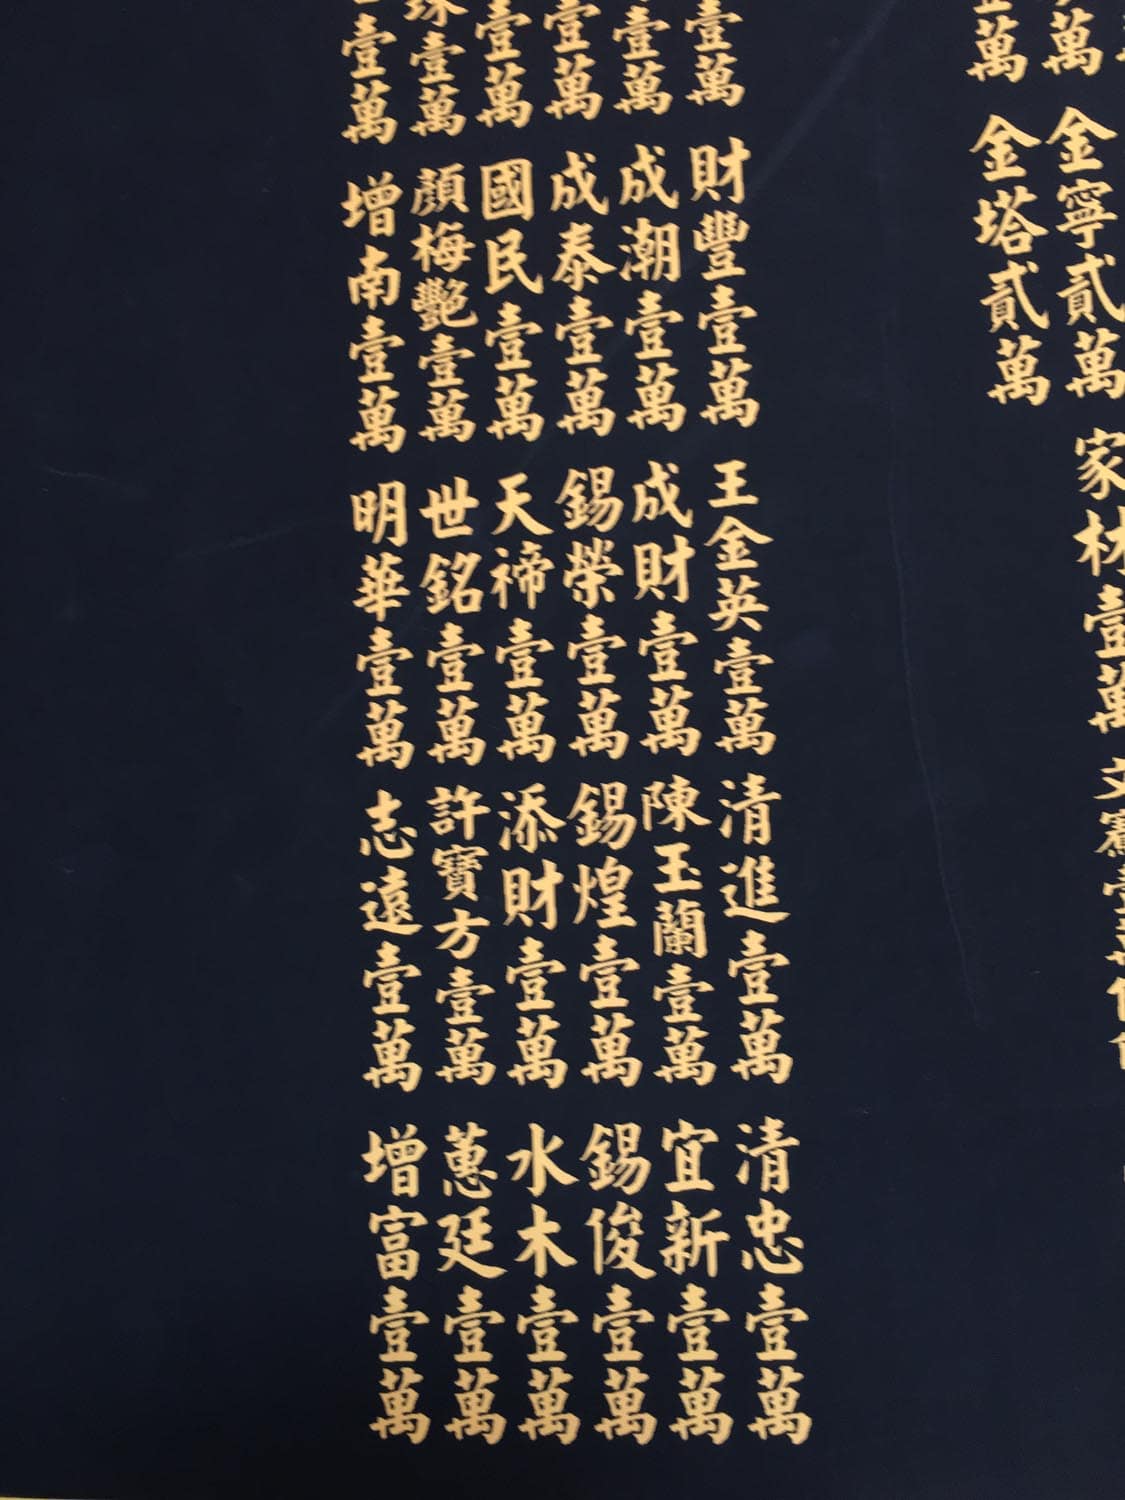 金寧貳萬
家林壹萬
金塔貳萬
壹萬
財豐壹萬
王金英壹萬
清進壹萬
清忠壹萬
壹萬
成潮壹萬
成財壹萬
陳玉蘭壹萬
宜新壹萬
壹萬
成泰壹萬
錫榮壹萬
錫煌壹萬
錫俊壹萬
壹萬
國民壹萬
天禘壹萬
添財壹萬
水木壹萬
壹萬
顏梅艷壹萬
世銘壹萬
許寶方壹萬
蕙廷壹萬
壹萬
增南壹萬
明華壹萬
志遠壹萬
增富壹萬